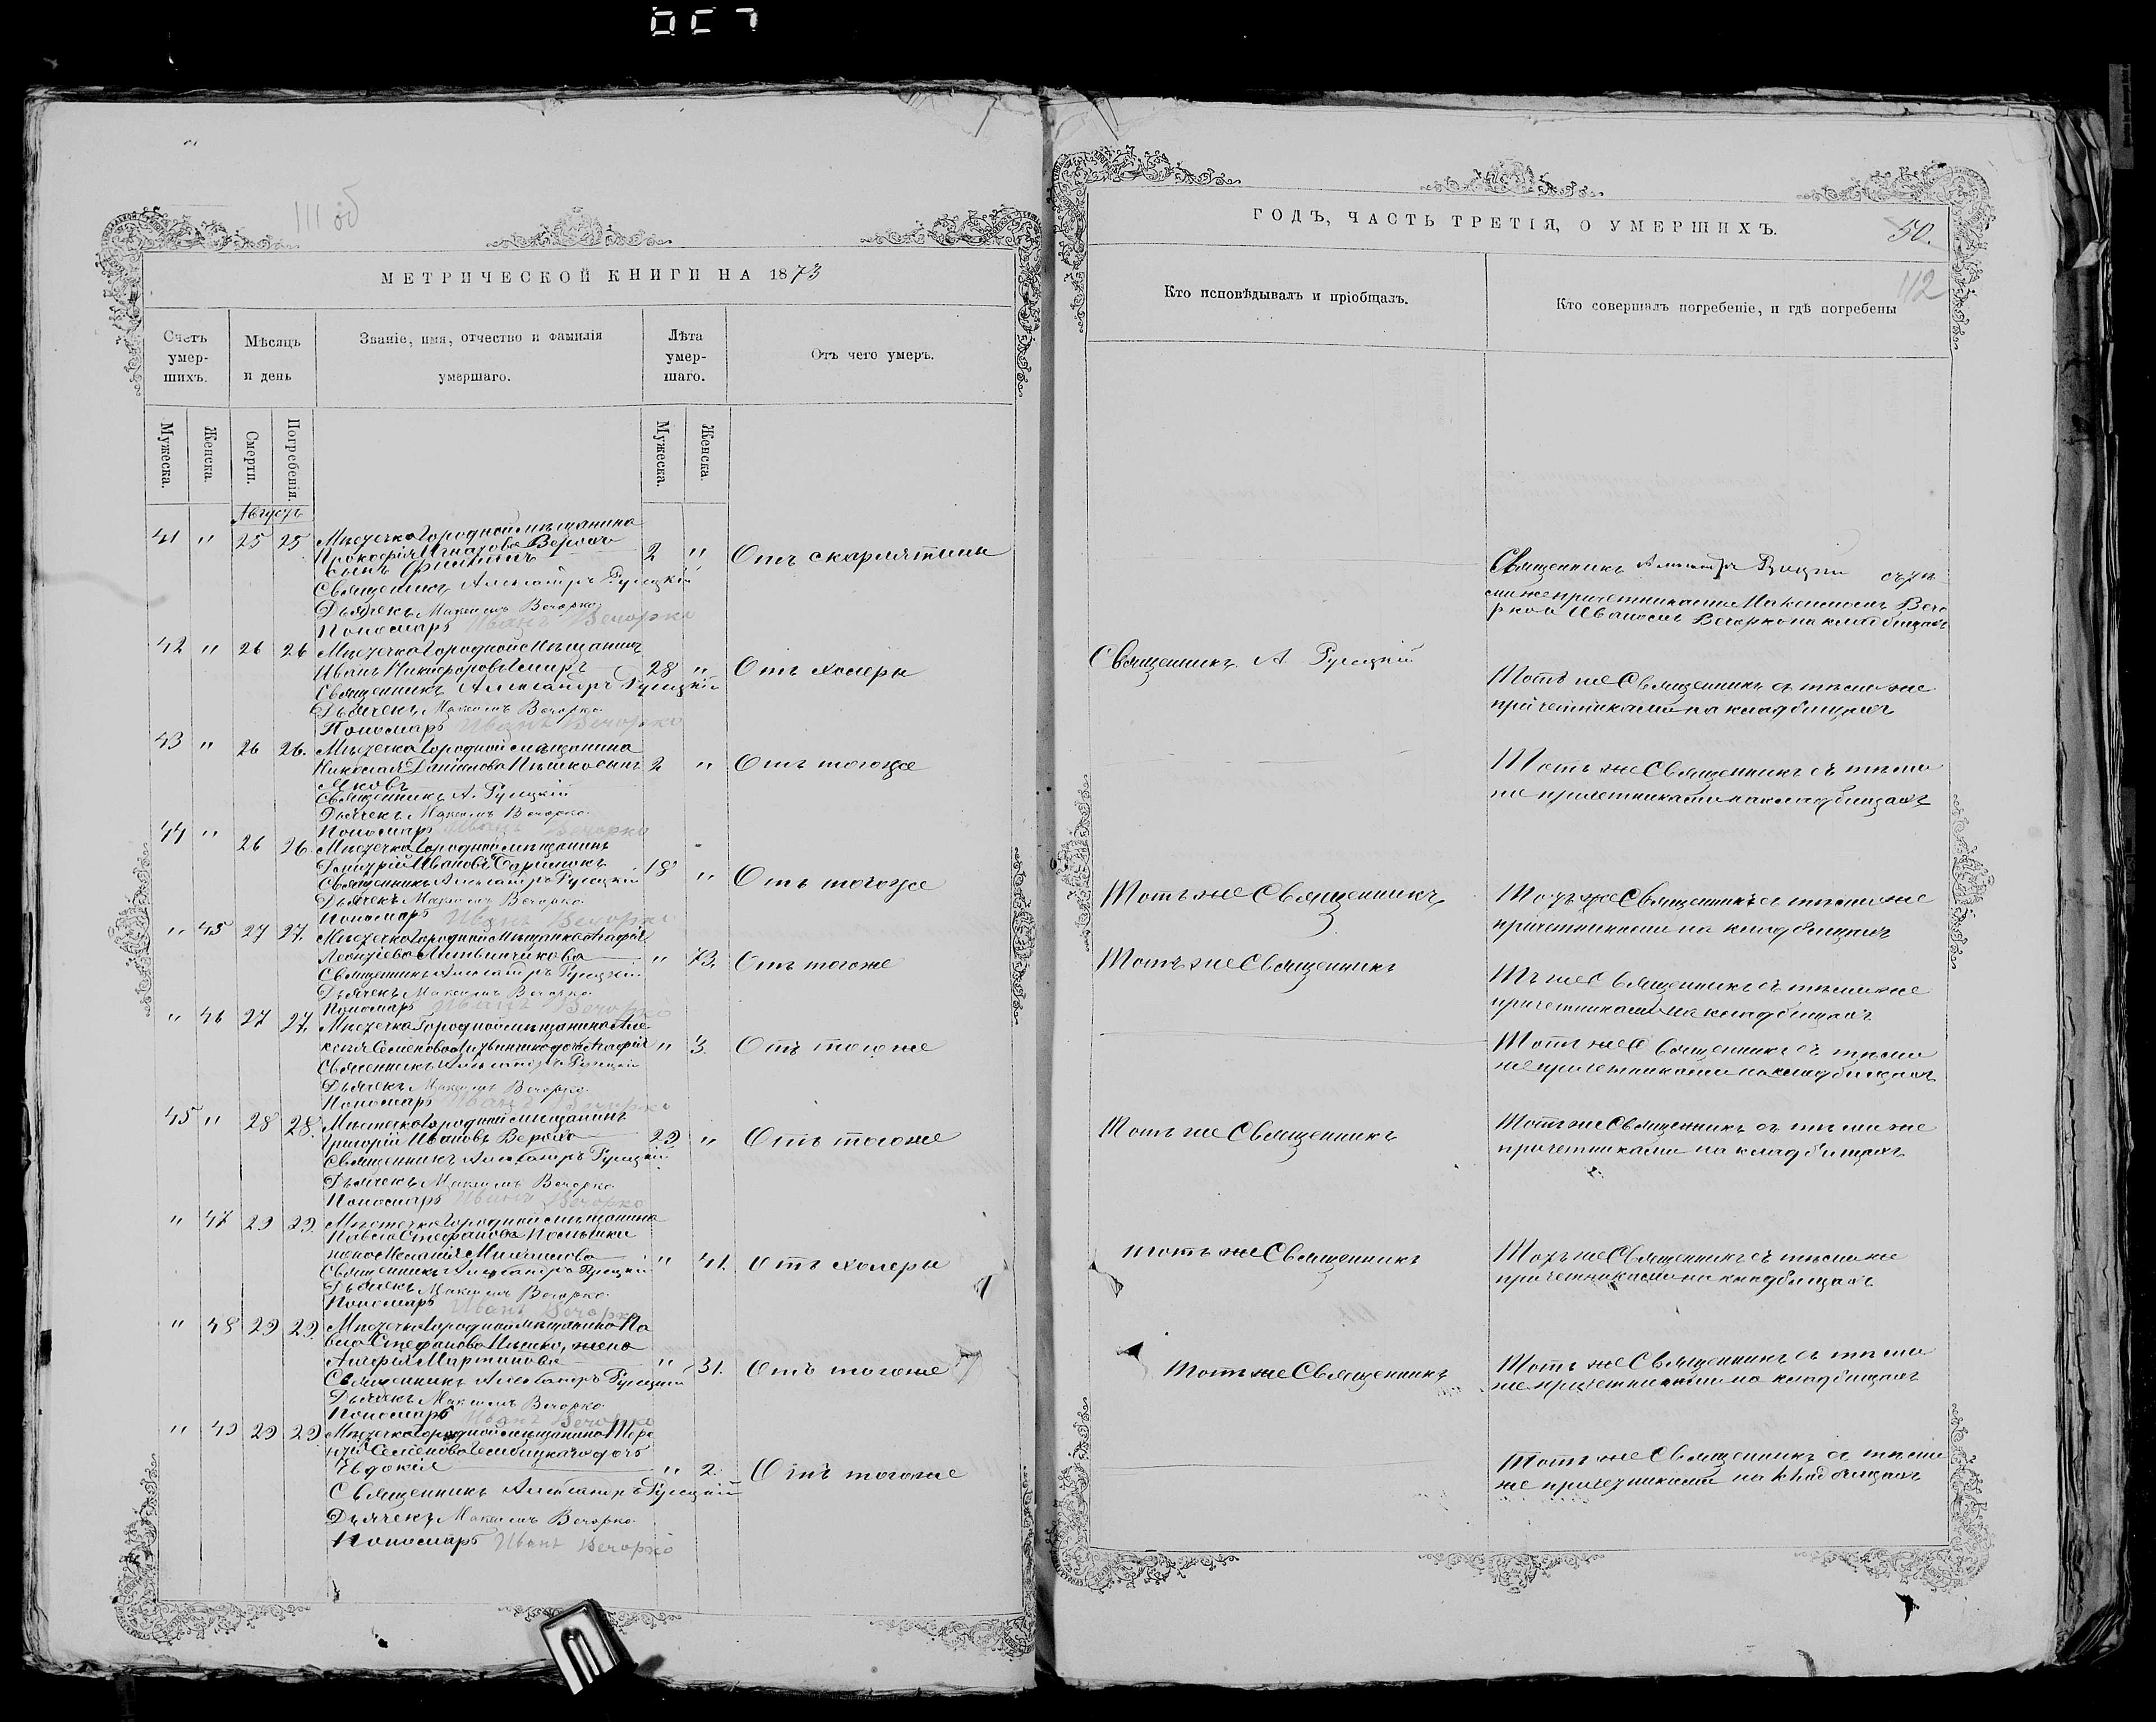 111 об
МЕТРИЧЕСКОЙ КНИГИ НА 1873
Счетъ умер- шихъ.
Мѣсяцъ и день
Званіе, имя, отчество и фамилія умершаго.
Лѣта умер- шаго.
Отъ чего умеръ.
Мужеска.
Женска.
Смерти.
Погребенія.
Мужеска.
Женска.
Августъ
41 " 25 25 Мѣстечка Городной мѣщанина
Прокофія Игнатова
сынъ 2 " Отъ скарлятины
Священникъ Александръ Русецкій
Дьячекъ Максимъ Вечорко.
Пономарь Иванъ Вечорко
42 " 26 26 Мѣстечка Городной Мѣщанинъ
Иванъ Никифоровъ 28 " Отъ холеры
Священникъ Александръ Русецкій
Дьячекъ Максимъ Вечорко.
Пономарь Иванъ Вечорко
43 " 26 26. Мѣстечка Городной мѣщанина
Николая Данилова Пѣшко сынъ 2 " Отъ тогоже
Яковъ
Священникъ А. Русецкій
Дьячекъ Максимъ Вечорко.
Пономарь Иванъ Вечорко
44 " 26 26. Мѣстечка Городной мѣщанинъ
Дмитрій Ивановъ 18 " Отъ тогоже
Священникъ Александръ Русецкій
Дьячекъ Максимъ Вечорко.
Пономарь Иванъ Вечорко
" 45 27 27. Мѣстечка Городной Мѣщанка Агафія
Леонтіева Литвинчукова " 73. Отъ тогоже
Священникъ Александръ Русецкій
Дьячекъ Максимъ Вечорко.
Пономарь Иванъ Вечорко
" 46 27 27. Мѣстечка Городной мѣщанина Але
ксѣя Семенова дочь Агафія " 3. Отъ тогоже
Священникъ Александръ Русецкій
Дьячекъ Максимъ Вечорко.
Пономарь Иванъ Вечорко
45 " 28 28. Мѣстечка Городной мѣщанинъ
Григорій Ивановъ 29 " Отъ тогоже
Священникъ Александръ Русецкій
Дьячекъ Максимъ Вечорко.
Пономарь Иванъ Вечорко
" 47 29 29. Мѣстечка Городной мѣщанина
Павла Стефанова
жена Меланія Михаилова " 41. Отъ холеры
Священникъ Александръ Русецкій
Дьячекъ Максимъ Вечорко.
Пономарь Иванъ Вечорко
" 48 29 29. Мѣстечка Городной мѣщанина Па
вла Стефанова Пѣшко, жена
Мартинова " 31. Отъ тогоже
Священникъ Александръ Русецкій
Дьячекъ Максимъ Вечорко.
Пономарь Иванъ Вечорко
" 49 29 29. Мѣстечка Городной мѣщанина Тере
нтій Семенова дочь
Евдокія " 2. Отъ тогоже
Священникъ Александръ Русецкій
Дьячекъ Максимъ Вечорко.
Пономарь Иванъ Вечорко
ГОДЪ, ЧАСТЬ ТРЕТІЯ, О УМЕРШИХЪ.
50.
112
Кто исповѣдывалъ и пріобщалъ.
Кто совершалъ погребеніе, и гдѣ погребены
Священникъ Александръ Русецкій съ тѣ
миже причетниками Максимомъ Вечо
рко и Иваномъ Вечорко на кладбищахъ
Священникъ А Русецкій
Тотъ же Священникъ съ тѣми же
причетниками на кладбищахъ
Тотъ же Священникъ съ тѣми
же причетниками на кладбищахъ
Тотъ же Священникъ
Тотъ же Священникъ съ тѣми же
причетниками на кладбищахъ
Тотъ же Священникъ
Тъ же Священникъ съ тѣми же
причетниками на кладбищахъ
Тотъ же Священникъ съ тѣми
же причетниками на кладбищахъ
Тотъ же Священникъ
Тотъ же Священникъ съ тѣми же
причетниками на кладбищахъ
Тотъ же Священникъ
Тотъ же Священникъ съ тѣми же
причетниками на кладбищахъ
Тотъ же Священникъ
Тотъ же Священникъ съ тѣми
же причетниками на кладбищахъ
Тотъ же Священникъ съ тѣми
же причетниками на кладбищахъ